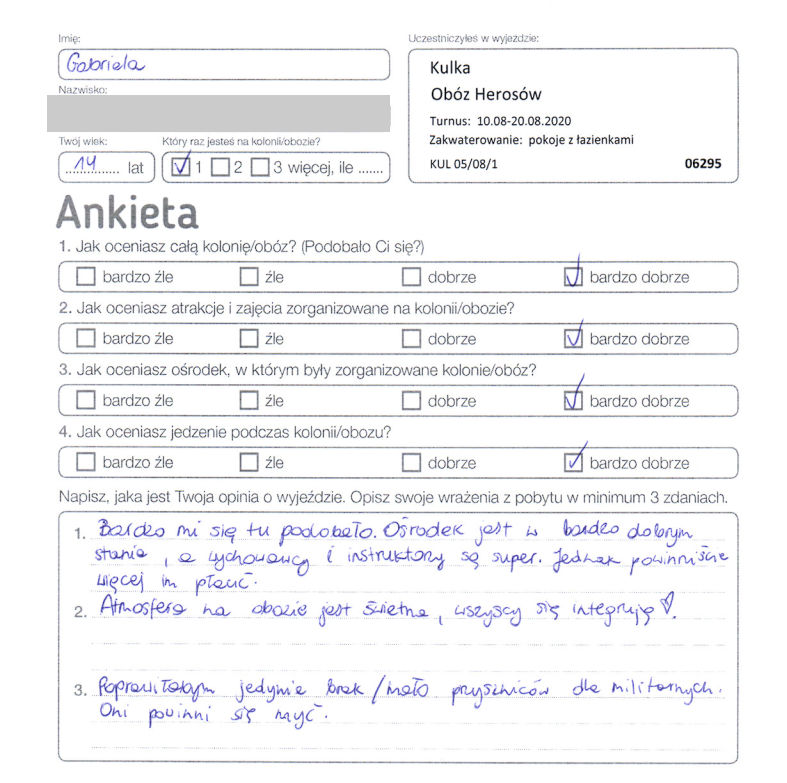 Imię:
Gabriela
Uczestniczyłeś w wyjeździe:
Kulka
Obóz Herosów
Turnus: 10.08-20.08.2020
Zakwaterowanie: pokoje z łazienkami
KUL 05/08/1 06295
Nazwisko:
Twoj wiek:
14 lat
Który raz jesteś na kolonii/obozie?
1 2 3 więcej, ile .......
Ankieta
1. Jak oceniasz całą kolonię/obóz? (Podobało Ci się?)
bardzo źle źle dobrze bardzo dobrze
2. Jak oceniasz atrakcje i zajęcia zorganizowane na kolonii/obozie?
bardzo źle źle dobrze bardzo dobrze
3. Jak oceniasz ośrodek, w którym były zorganizowane kolonie/obóz?
bardzo źle źle dobrze bardzo dobrze
4. Jak oceniasz jedzenie podczas kolonii/obozu?
bardzo źle źle dobrze bardzo dobrze
Napisz, jaka jest Twoja opinia o wyjeździe. Opisz swoje wrażenia z pobytu w minimum 3 zdaniach.
1. Bardzo mi się tu podobało. Ośrodek jest w bardzo dobrym
stanie, a wychowawcy i instruktorzy są super. Jednak powinniście
więcej im płacić.
2. Atmosfera na obozie jest świetna, wszyscy się integrują ♡.
3. Poprawiłabym jedynie brak/mało pryszniców dla militarnych.
Oni powinni się myć.